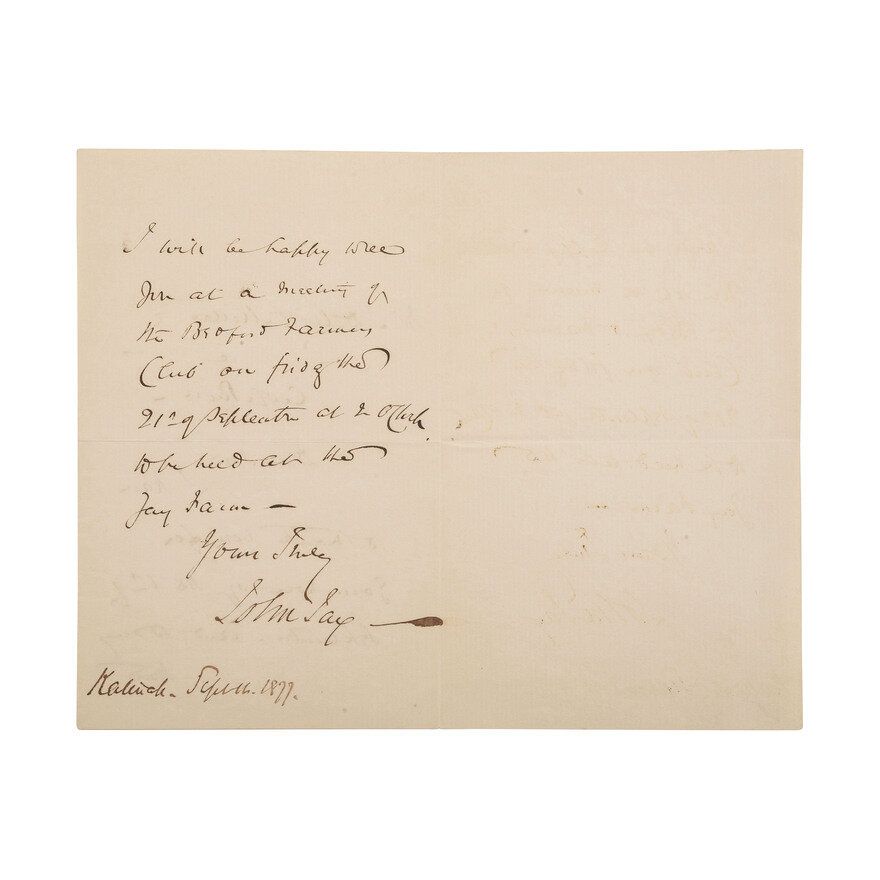 I will be happy to see
you at a meeting of
the Bedford Farmers
Club on friday the
21st of September at 2 OClock
to be held at the
Jay Farm —
Yours Truly
John Jay
Katonah. Sept 1877.